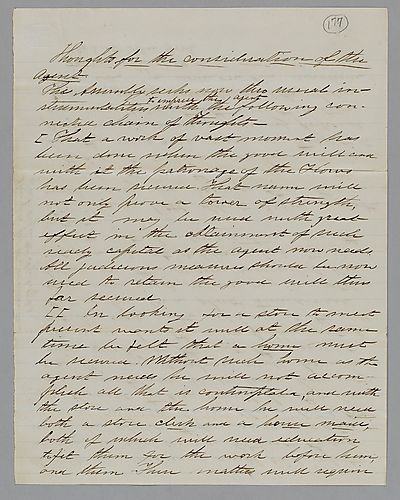 177
Thoughts for the consideration of the
Agent
The Assembly seeks now this moral in-
strumentalities to impress the agent
with the following con-
nected chain of thoughts
I That a work of vast moment has
been done when the good will and
with it the patronage of the
has been secured. That name will
not only prove a tower of strength,
but it may be used with great
effect in the obtainment of such
ready capital as the agent now needs
All judicious measures should be now
used to retain the good will thus
far secured
II In looking for a store to meet
present wants it will at the same
time be felt that a home must
be secured. Without such home as the
agent need he will not accom-
plish all that is contemplated, and with
the store and the home he will need
both a store clerk and a house maid,
both of which will need education
to fit them for the work before him
and them These matters will require